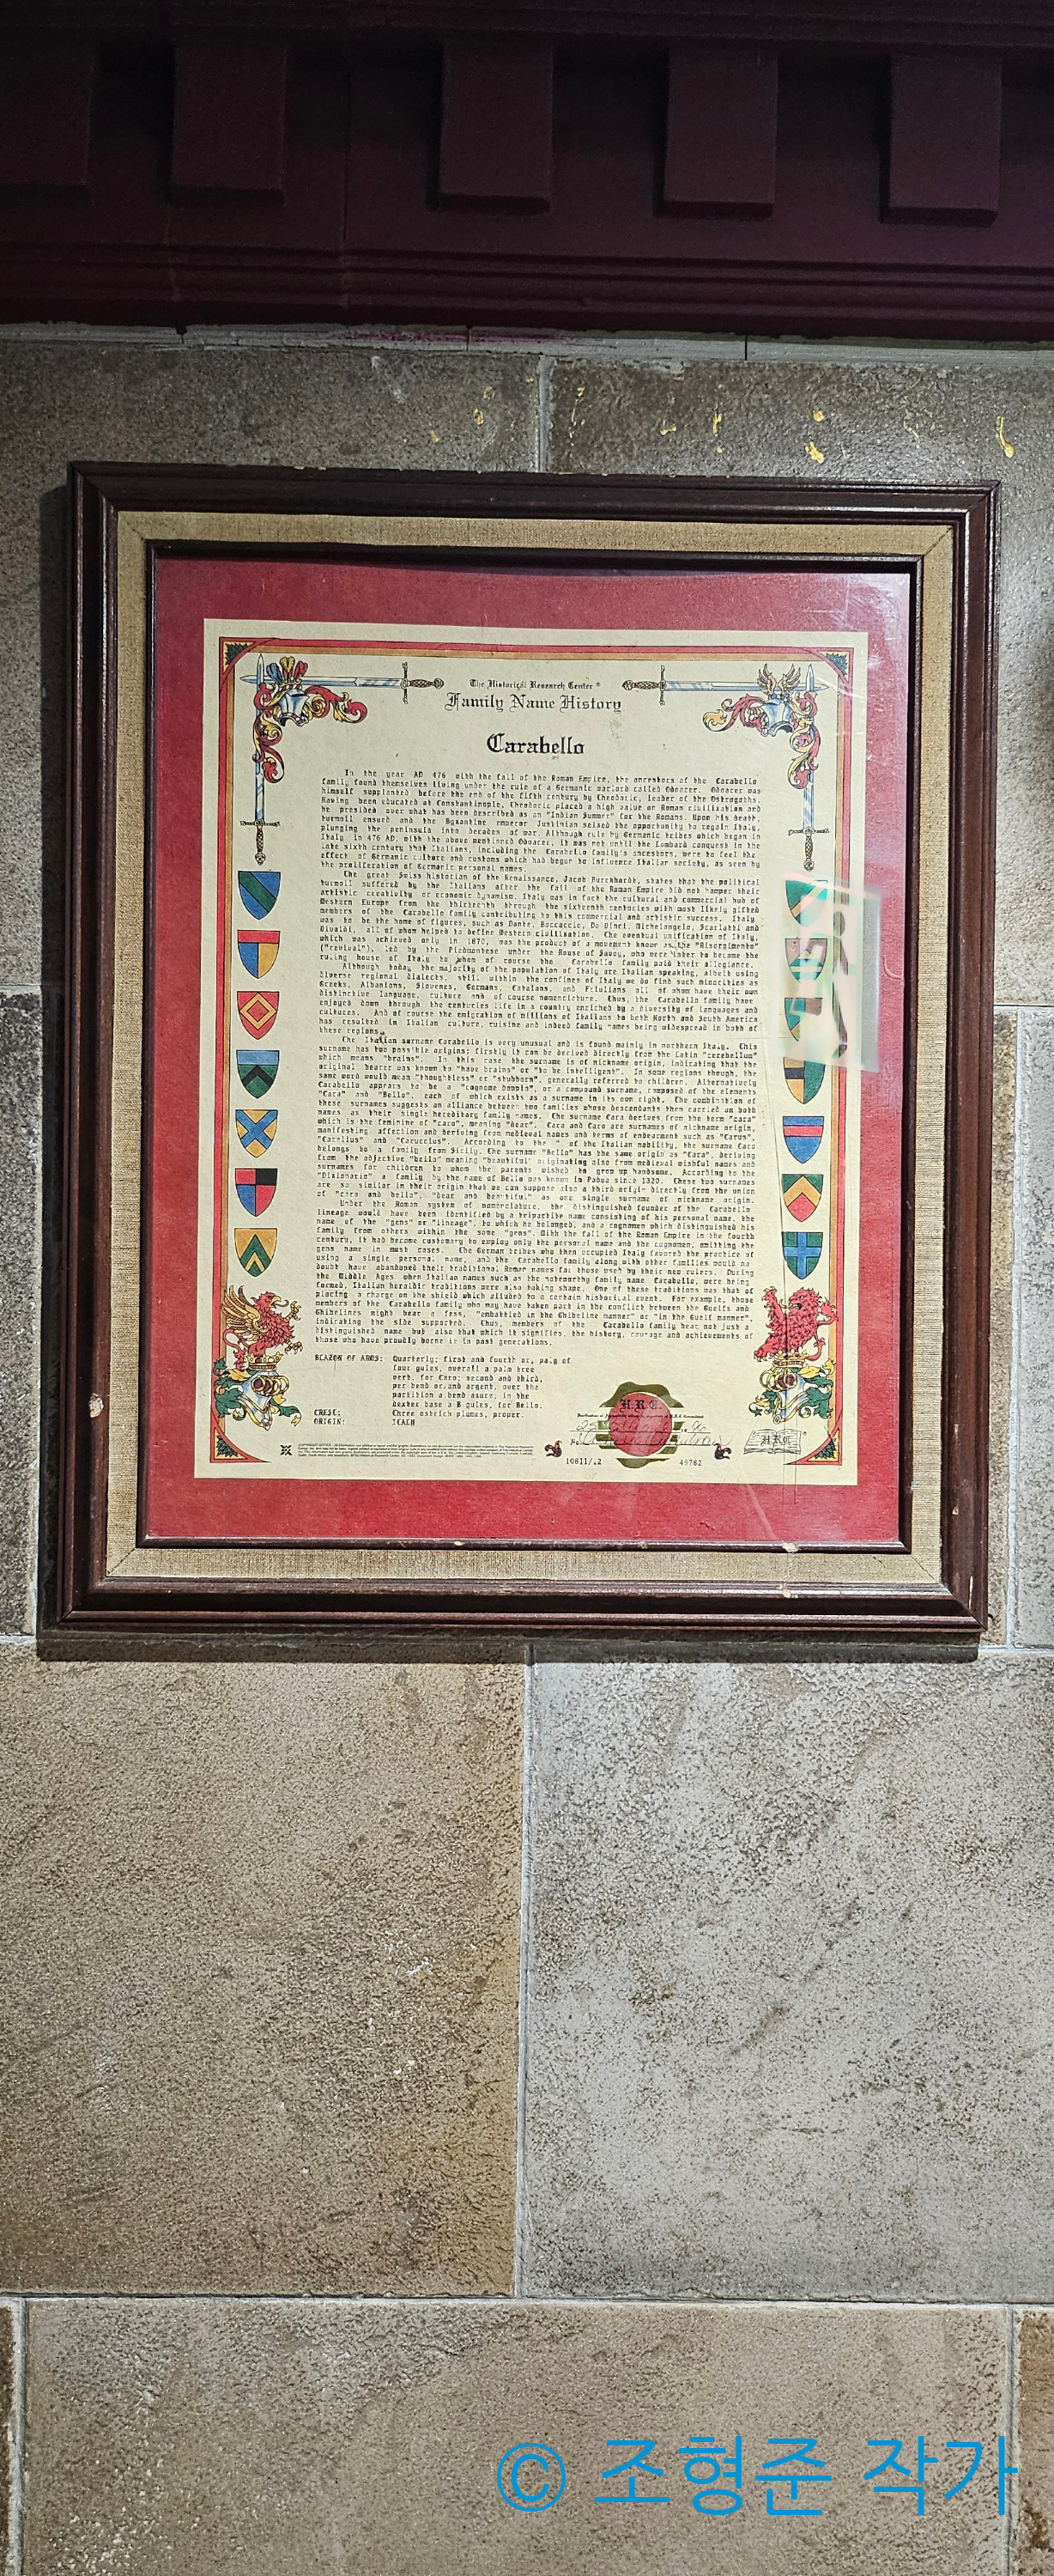 The Historical Research Center ®
Family Name History
Carabello
In the year AD 476 with the fall of the Roman Empire, the ancestors of the Carabello
family found themselves living under the rule of a Germanic warlord called Odoacer. Odoacer was
himself supplanted before the end of the fifth century by Theodoric, leader of the Ostrogoths.
Having been educated at Constantinople, Theodoric placed a high value on Roman civilization and
he presided over what has been described as an "Indian Summer" for the Romans. Upon his death,
turmoil ensued and the Byzantine emperor Justinian seized the opportunity to regain Italy,
plunging the peninsula into decades of war. Although rule by Germanic tribes which began in
Italy in 476 AD with the above mentioned Odoacer, it was not until the Lombard conquest in the
late sixth century that Italians, including the Carabello family's ancestors, were to feel the
effect of Germanic culture and customs which had begun to influence Italian society, as seen by
the proliferation of Germanic personal names.
The great Swiss historian of the Renaissance, Jacob Burckhardt, states that the political
turmoil suffered by the Italians after the fall of the Roman Empire did not hamper their
artistic creativity or economic dynamism. Italy was in fact the cultural and commercial hub of
Western Europe from the thirteenth through the sixteenth centuries with most likely gifted
members of the Carabello family contributing to this commercial and artistic success. Italy
was to be the home of figures, such as Dante, Boccaccio, Da Vinci, Michelangelo, Scarlatti and
Vivaldi, all of whom helped to define Western civilisation. The eventual unification of Italy,
which was achieved only in 1870, was the product of a movement known as the "Risorgimento"
("revival"), led by the Piedmontese under the House of Savoy, who were later to become the
ruling house of Italy to whom of course the Carabello family paid their allegiance.
Although today the majority of the population of Italy are Italian speaking, albeit using
diverse regional dialects, still within the confines of Italy we do find such minorities as
Greeks, Albanians, Slovenes, Germans, Catalans, and Friulians all of whom have their own
distinctive language, culture and of course nomenclature. Thus, the Carabello family have
enjoyed down through the centuries life in a country enriched by a diversity of languages and
cultures. And of course the emigration of millions of Italians to both North and South America
has resulted in Italian culture, cuisine and indeed family names being widespread in both of
these regions.
The Italian surname Carabello is very unusual and is found mainly in northern Italy. This
surname has two possible origins; firstly it can be derived directly from the Latin "cerebellum"
which means "brains". In this case the surname is of nickname origin, indicating that the
original bearer was known to "have brains" or "to be intelligent". In some regions though, the
same word would mean "thoughtless" or "stubborn", generally referred to children. Alternatively
Carabello appears to be a "cognome doppio", or a compound surname, composed of the elements
"Cara" and "Bello", each of which exists as a surname in its own right. The combination of
these surnames suggests an alliance between two families whose descendants then carried on both
names as their single hereditary family names. The surname Cara derives from the term "cara"
which is the feminine of "caro", meaning "dear". Cara and Caro are surnames of nickname origin,
manifesting affection and deriving from medieval names and terms of endearment such as "Carus",
"Carellus" and "Caruccius". According to the " of the Italian nobility, the surname Caro
belongs to a family from Sicily. The surname "Bello" has the same origin as "Cara", deriving
from the adjective "bello" meaning "beautiful" originating also from medieval wishful names and
surnames for children to whom the parents wished to grow up handsome. According to the
"Dizionario" a family by the name of Bello was known in Padua since 1320. These two surnames
are so similar in their origin that we can suppose also a third origin directly from the union
of "caro and bello", "dear and beautiful" as one single surname of nickname origin.
Under the Roman system of nomenclature, the distinguished founder of the Carabello
lineage would have been identified by a tripartite name consisting of his personal name, the
name of the "gens" or "lineage", to which he belonged, and a cognomen which distinguished his
family from others within the same "gens". With the fall of the Roman Empire in the fourth
century, it had become customary to employ only the personal name and the cognomen, omitting the
gens name in most cases. The German tribes who then occupied Italy favored the practice of
using a single personal name, and the Carabello family along with other families would no
doubt have abandoned their traditional Roman names for those used by their new rulers. During
the Middle Ages when Italian names such as the noteworthy family name Carabello, were being
formed, Italian heraldic traditions were also taking shape. One of these traditions was that of
placing a charge on the shield which alluded to a certain historical event. For example, those
members of the Carabello family who may have taken part in the conflict between the Guelfs and
Ghibelines might bear a fess, "embattled in the Ghibeline manner" or "in the Guelf manner",
indicating the side supported. Thus, members of the Carabello family bear not just a
distinguished name but also that which it signifies, the history, courage and achievements of
those who have proudly borne it in past generations.
BLAZON OF ARMS: Quarterly; first and fourth or, paly of
four gules, overall a palm tree
vert, for Caro; second and third,
per bend or and argent, over the
partition a bend azure, in the
dexter base a B gules, for Bello.
CREST: Three ostrich plumes, proper.
ORIGIN: ITALY
H.R.C.
H.R.C.
10811/.2
49762
© 조형준 작가